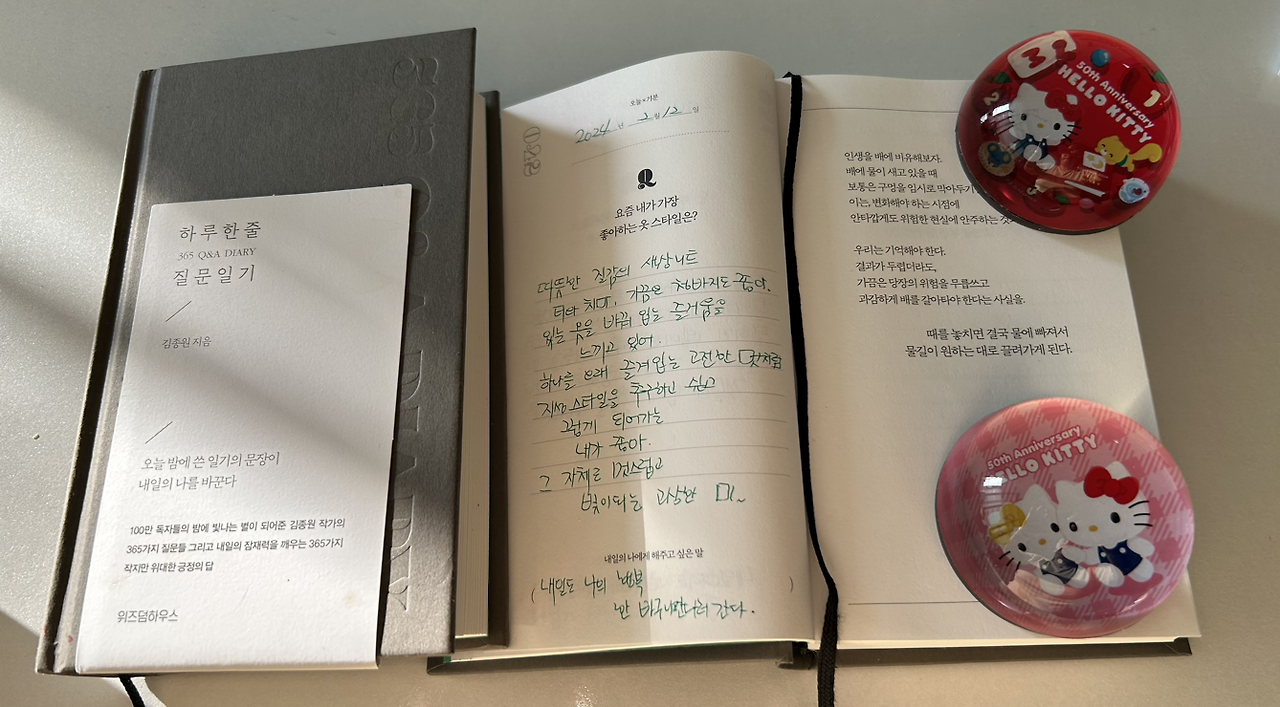 하루 한 줄
365 Q&A DIARY
질문 일기
김종원 지음
오늘 밤에 쓴 일기의 문장이
내일의 나를 바꾼다
100만 독자들의 밤에 빛나는 별이 되어준 김종원 작가의
365가지 질문들 그리고 내일의 잠재력을 깨우는 365가지
작지만 위대한 긍정의 답
위즈덤하우스
365 Q&A DIARY
오늘 × 기분
2024년 2월 12일
Q
요즘 내가 가장
좋아하는 옷 스타일은?
따뜻한 질감의 색상 니트
치마, 가끔은 청바지도 좋다.
입는 옷을 바꿔 입는 즐거움을
느끼고 있어.
하나를 오래 즐겨 입는 고전한 멋처럼
지성 스타일을 추구하고 싶고
그렇게 되어가는
내가 좋아.
그 자체로
빛이 되는 고상한 미~
내일의 나에게 해주고 싶은 말
(내일도 나의 행복
간다.)
인생을 배에 비유해보자.
배에 물이 새고 있을 때
보통은 구멍을 임시로 막아두기
이는, 변화해야 하는 시점에
안타깝게도 위험한 현실에 안주하는
우리는 기억해야 한다.
결과가 두렵더라도,
가끔은 당장의 위험을 무릅쓰고
과감하게 배를 갈아타야 한다는 사실을.
때를 놓치면 결국 물에 빠져서
물길이 원하는 대로 끌려가게 된다.
50th Anniversary
HELLO KITTY
1
2
50th Anniversary
HELLO KITTY